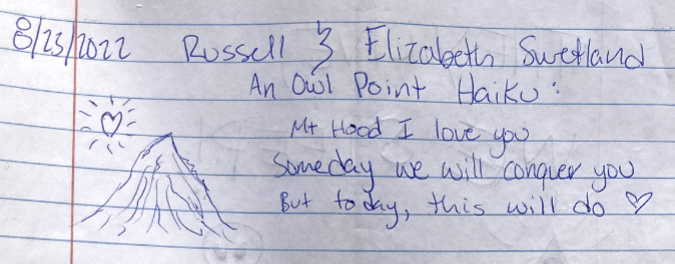 8/23/2022 Russell & Elizabeth Swetland
An Owl Point Haiku:
Mt Hood I love you
Someday we will conquer you
But today, this will do ♡